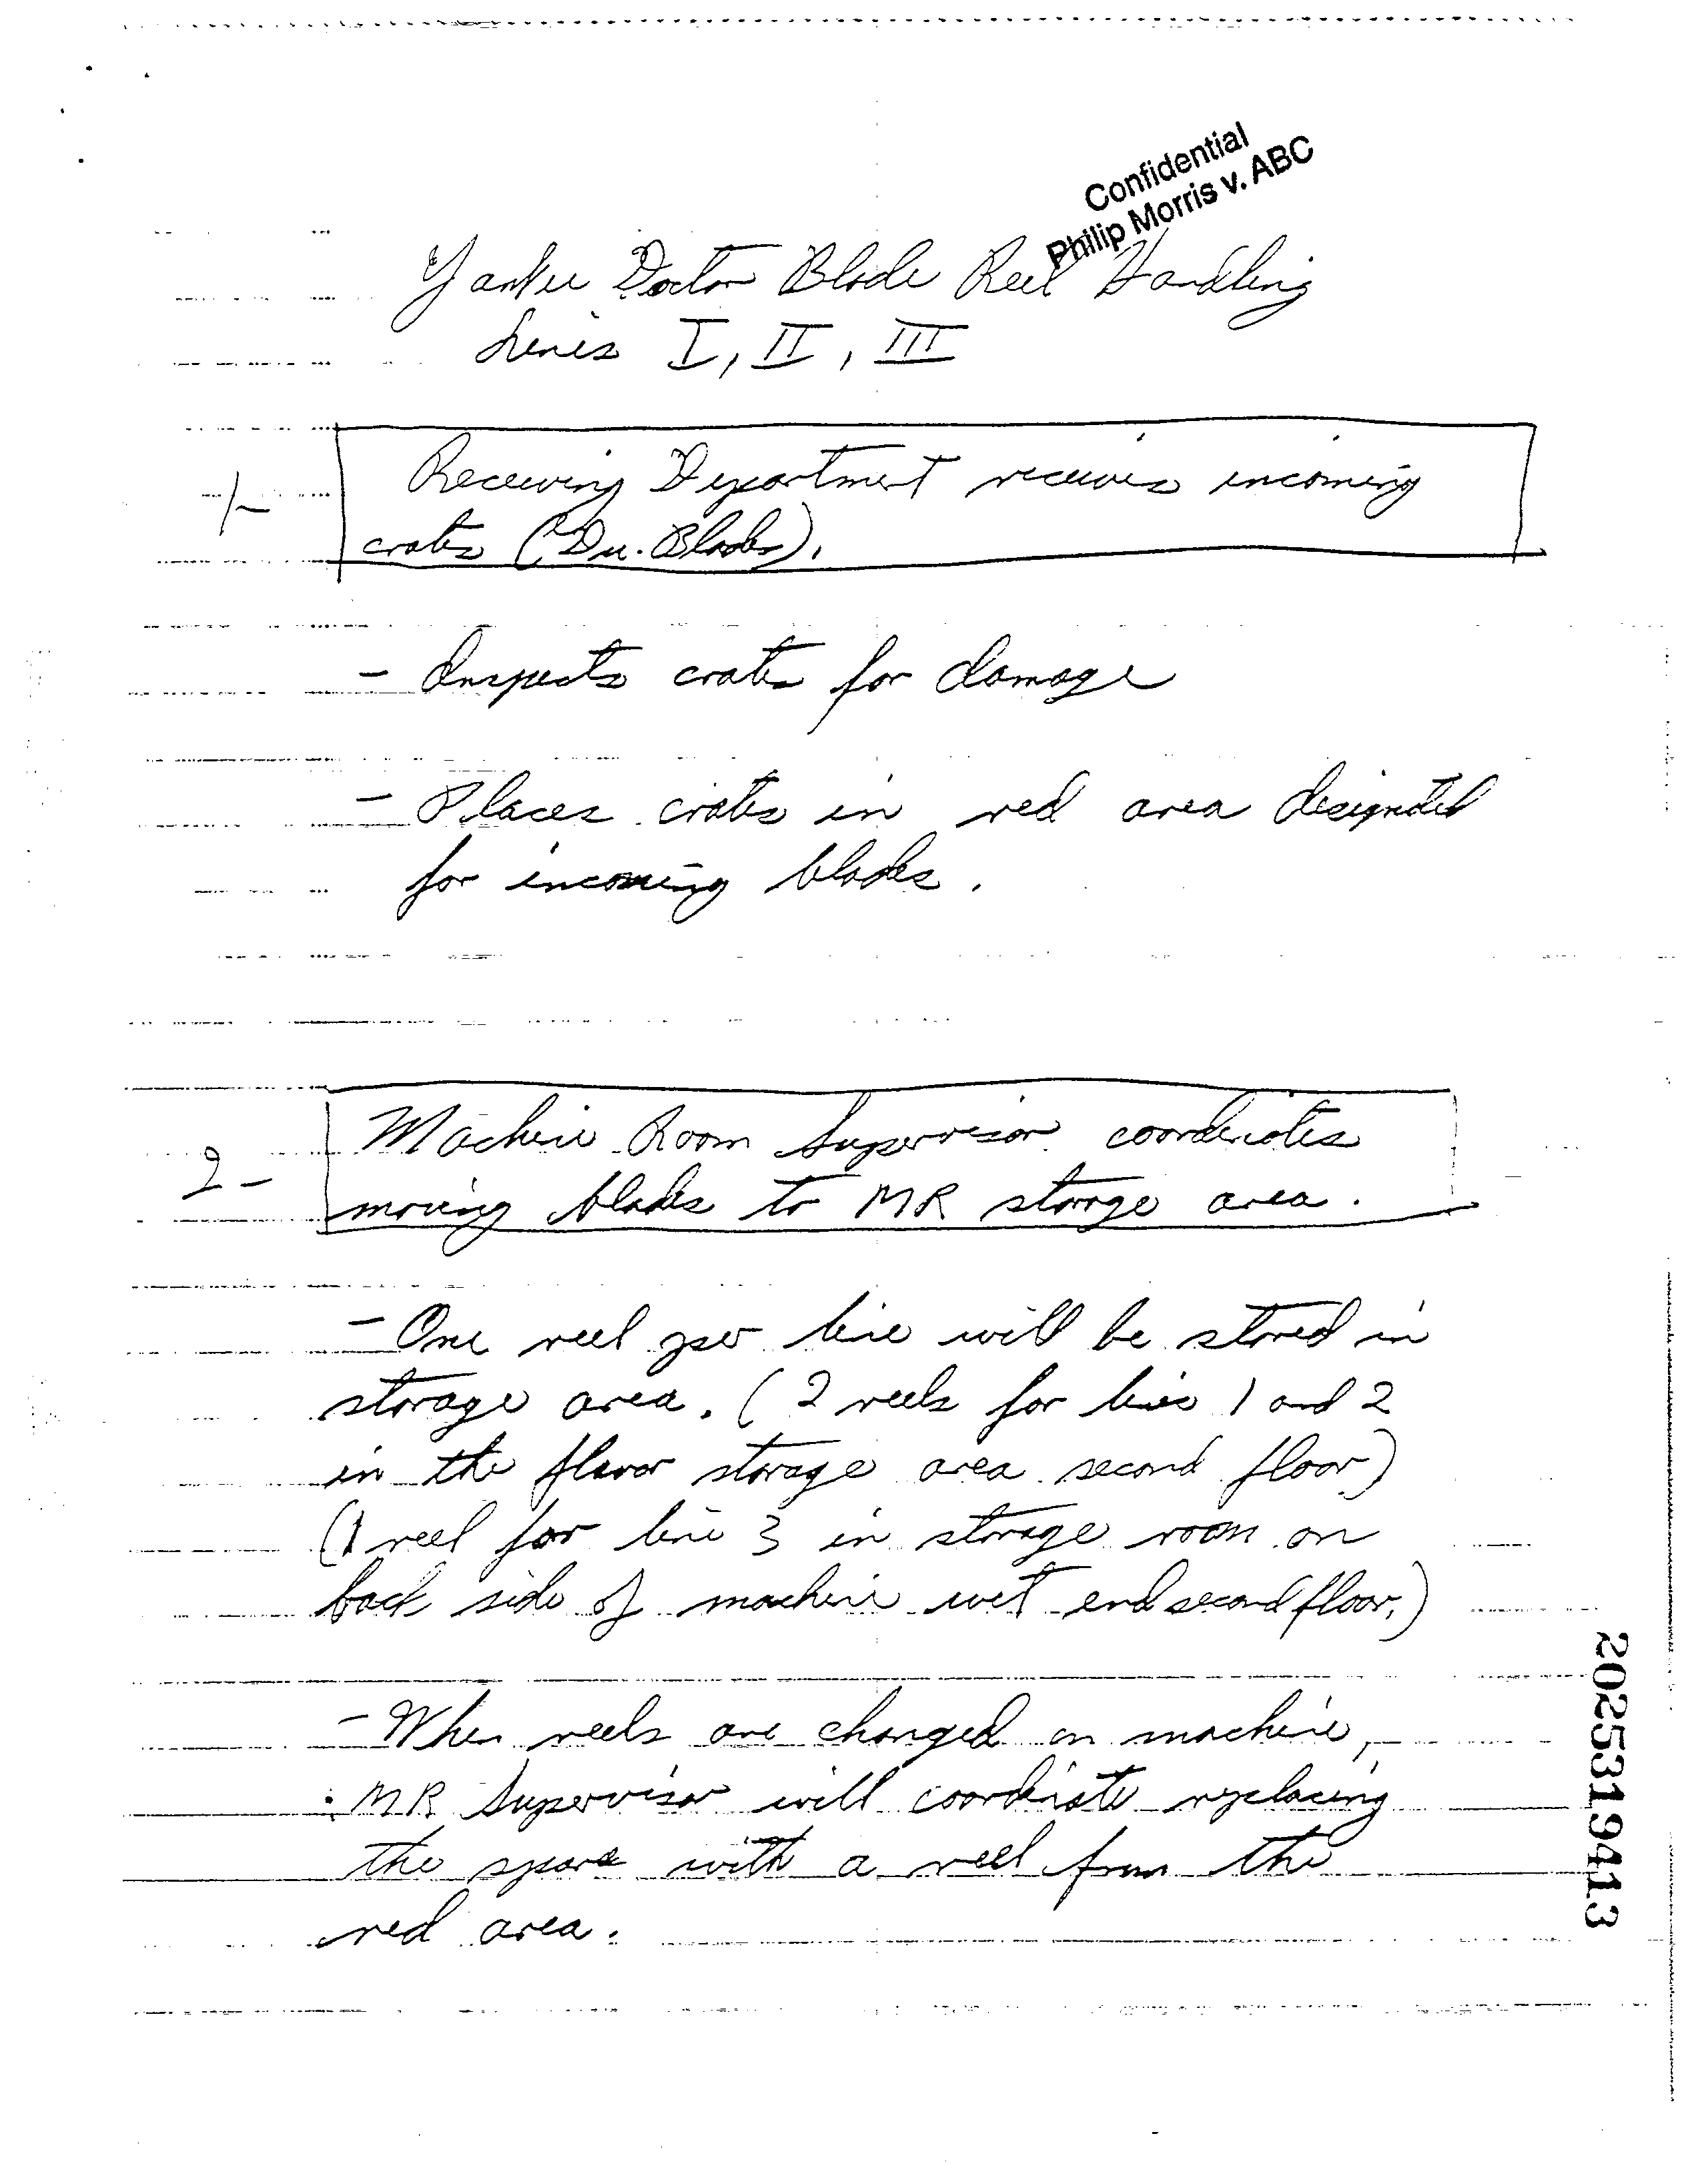 Confidential
Philip Morris v. ABC
Yankee Doctor Blade Reel Handling
Lines I, II, III
1- Receiving Department receives incoming
crates (Dr. Blades).
- Inspects crates for damage
- Places crates in red area designated
for incoming blades.
2- Machine Room Supervisor coordinates
moving blades to MR storage area.
- One reel per line will be stored in
storage area. (2 reels for line 1 and 2
in the flavor storage area second floor)
(1 reel for line 3 in storage room on
back side of machine wet end second floor.)
- When reels are changed on machine,
MR Supervisor will coordinate replacing
the spare with a reel from the
red area.
2025319413